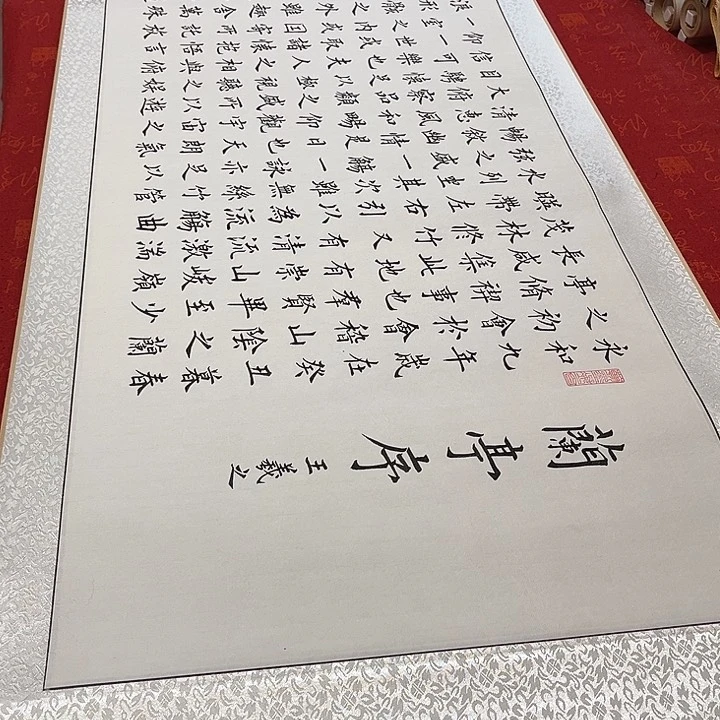 蘭亭序
王羲之
永和九年歲在癸丑暮春
之初會於會稽山陰之蘭
亭脩禊事也羣賢畢至少
長咸集此地有崇山峻嶺
茂林脩竹又有清流激湍
映帶左右引以為流觴曲
水列坐其次雖無絲竹管
絃之盛一觴一詠亦足以
暢敘幽情是日也天朗氣
清惠風和暢仰觀宇宙之
大俯察品類之盛所以遊
目騁懷足以極視聽之娛
信可樂也夫人之相與俯
仰一世或取諸懷抱悟言
一室之內或因寄所託放
浪形骸之外雖趣舍萬殊